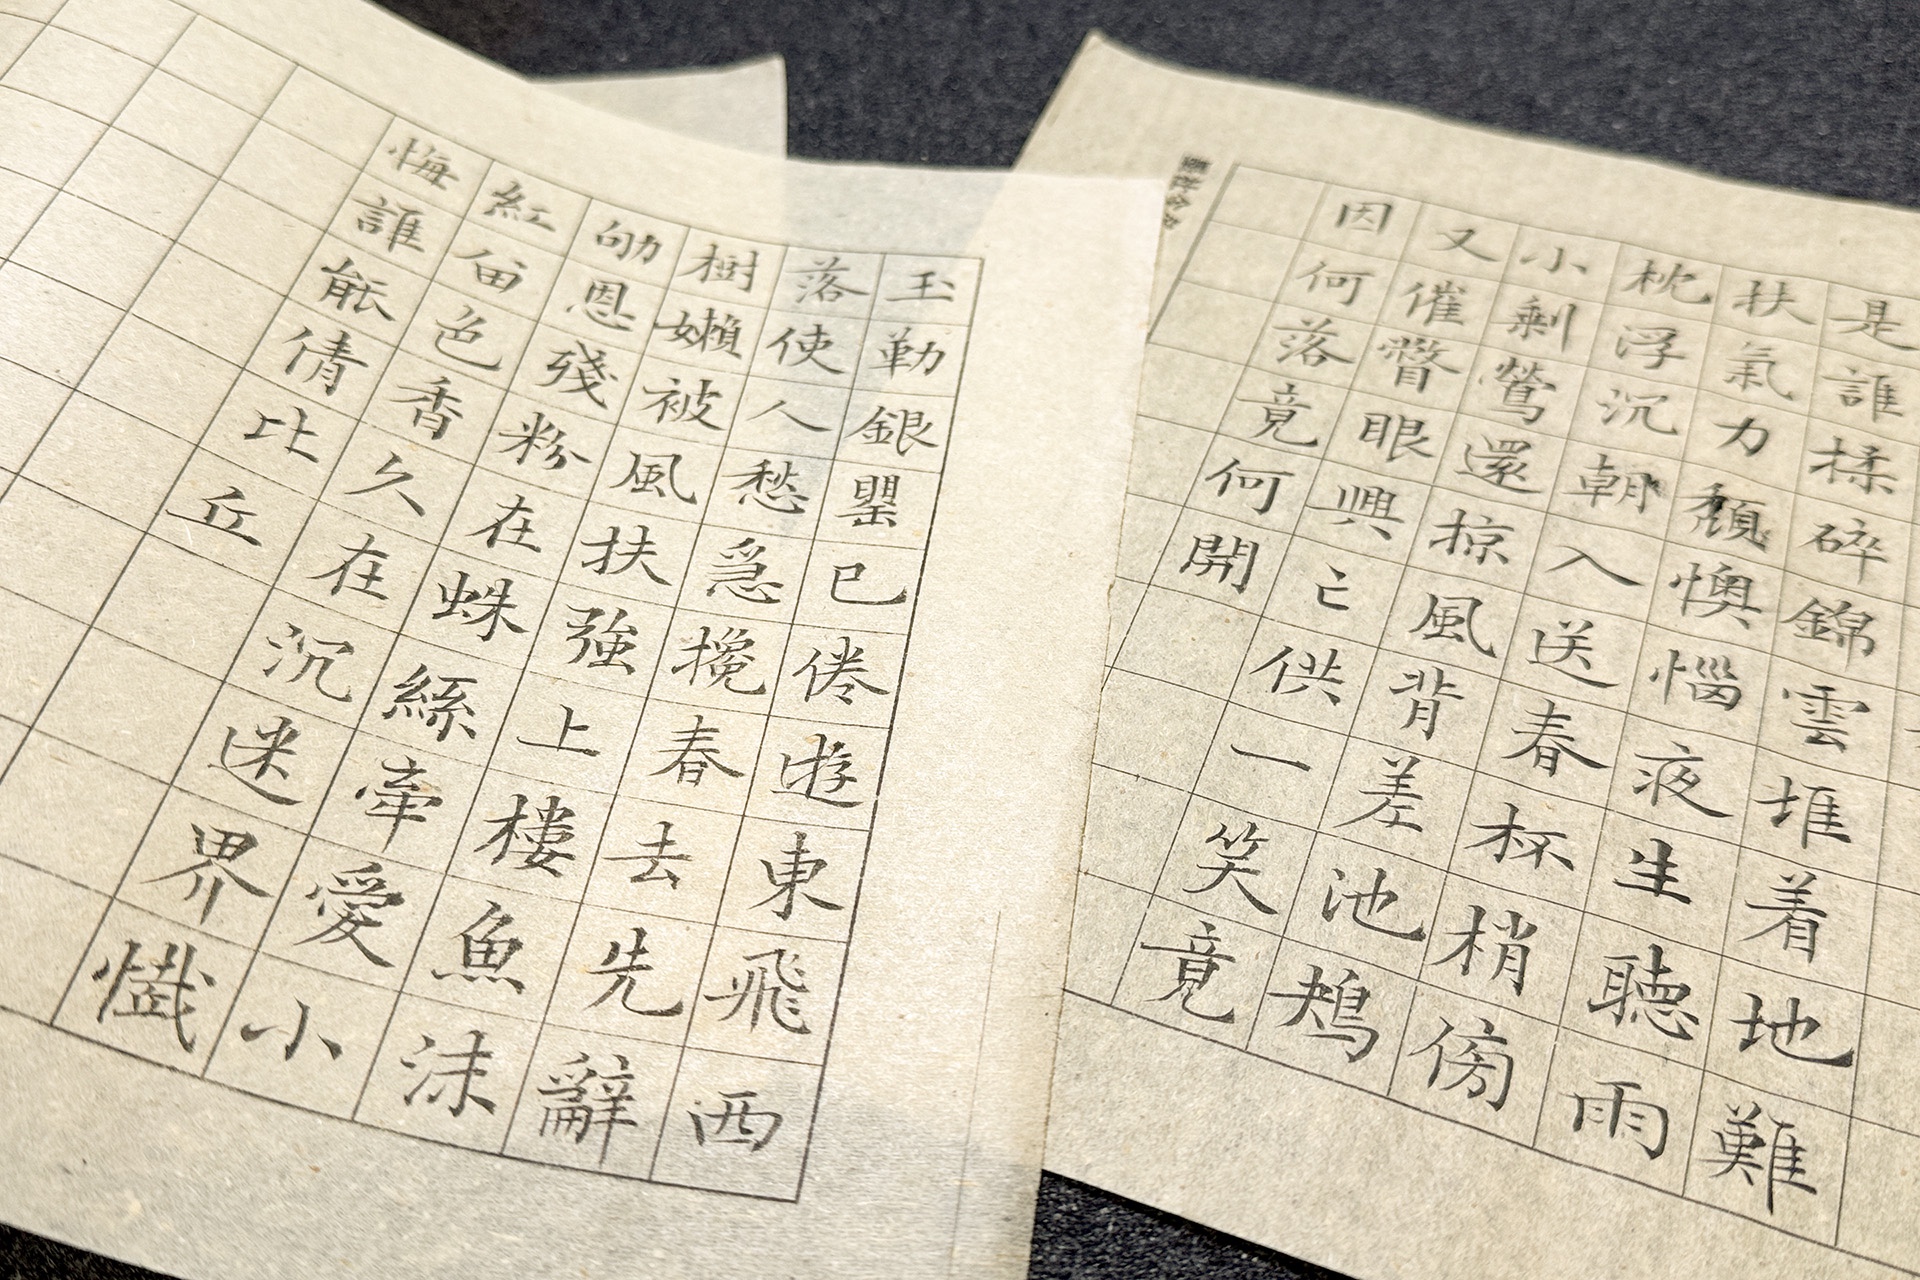 是誰揉碎錦雲堆着地難
扶氣力頹懊惱夜生聽雨
枕浮沉朝入送春杯梢傍
小剩鶯還掠風背差池鴂
又催瞥眼興亡供一笑竟
因何落竟何開
玉勒銀罌已倦遊東飛西
落使人愁急攙春去先辭
樹嬾被風扶強上樓魚沫
劬恩殘粉在蛛絲牽愛小
紅留色香久在沉迷界懺
悔誰能倩比丘